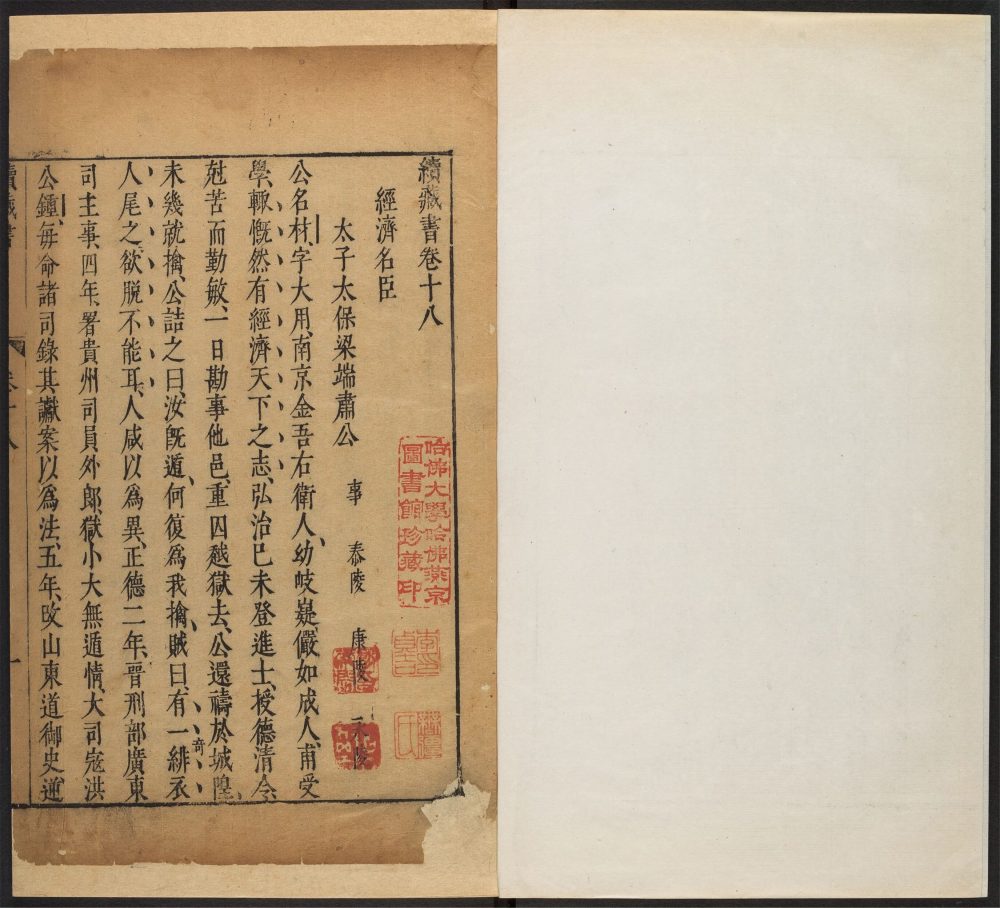 續藏書卷十八
經濟名臣
太子太保梁端肅公 事 泰陵 康陵 永陵
公名材、字大用、南京金吾右衛人、幼岐嶷、儼如成人、甫受
學、輒慨然有經濟天下之志、弘治己未登進士、授德清令、
尅苦而勤敏、一日勘事他邑、重囚越獄去、公還禱於城隍、
未幾就擒、公詰之曰、汝既遁、何復爲我擒、賊曰、有一緋衣
奇
人尾之、欲脫不能耳、人咸以爲異、正德二年、晉刑部廣東
司主事、四年、署貴州司員外郎、獄小大無遁情、大司寇洪
公鍾、每命諸司錄其讞案以爲法、五年、改山東道御史、逆
續藏書 卷十八 一
哈佛大學哈佛燕京
圖書館珍藏印